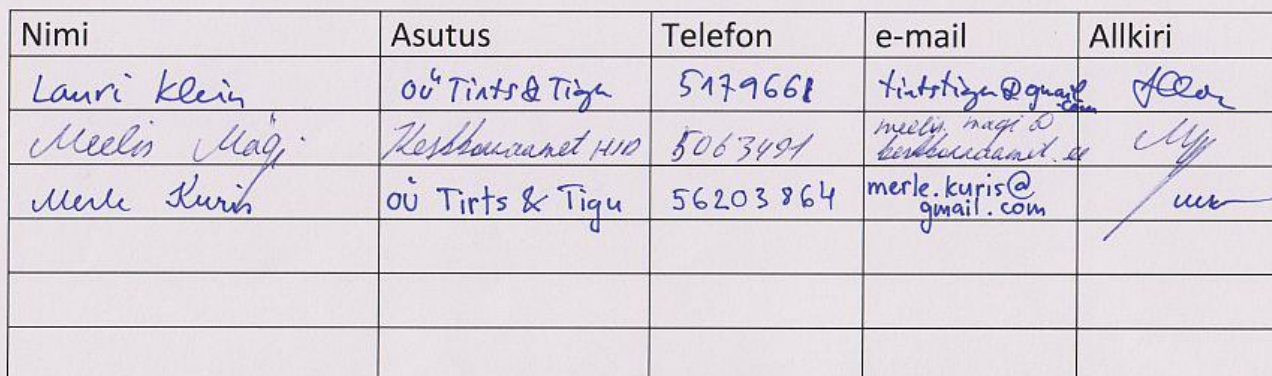 Nimi Asutus Telefon e-mail Allkiri
Lauri Klein OÜ Tirts & Tigu 5179661 tirtstigu@gmail.com
Meelis Mägi Keskkonnaamet HJR 5063491 meelis.magi@
keskkonnaamet.ee
Merle Kuris OÜ Tirts & Tigu 56203864 merle.kuris@
gmail.com